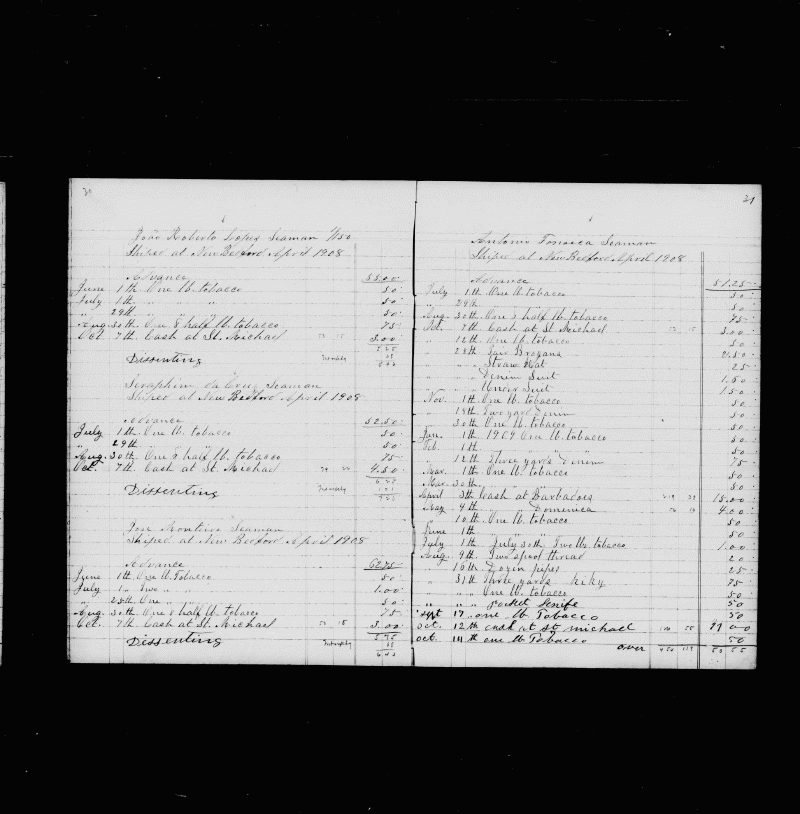 João Roberto Lopez Seaman 1/150
Shiped at New Bedford April 1908
Advance 55.00
June 1th One lb. tobacco 50
July 1th " " " 50
" 29th " " " 50
Aug. 30th One & half lb. tobacco 75
Oct. 7th Cash at St. Michael 3.00
Dissenting
Seraphin da Cruz Seaman
Shiped at New Bedford April 1908
Advance 52.50
July 1th One lb. tobacco 50
" 29th " " " 50
Aug. 30th One & half lb. tobacco 75
Oct. 7th Cash at St. Michael 4.50
Dissenting
José Monteiro Seaman
Shiped at New Bedford April 1908
Advance 62.75
June 1th One lb. Tobacco 50
July 1" Two " " 1.00
" 28th One " " 50
Aug. 30th One & half lb. tobacco 75
Oct. 7th Cash at St. Michael 3.00
Dissenting
21
Antonio Fonseca Seaman
Shiped at New Bedford April 1908
Advance 51.25
July 1th One lb. tobacco 50
" 29th " " " 50
Aug. 30th One & half lb. tobacco 75
Oct. 7th Cash at St. Michael 3.00
" 12th One lb. tobacco 50
" 28th Pair Brogans 2.50
" " " Straw Hat 25
" " " Denim Suit 1.50
" " " Under Suit 1.50
Nov. 1th One lb. tobacco 50
" 18th Two yard Denim 50
" 30th One lb. tobacco 50
Jan. 1th 1909 One lb. tobacco 50
Feb. 1th " " " 50
" 12th Three yards Denim 75
Mar. 1th One lb. tobacco 50
Mar. 30th " " " 50
April 3th Cash at Barbadoes 15.00
May 4th " " Domenica 4.00
" 10th One lb. tobacco 50
June 1th " " " 50
July 1th " July 30th Two lbs. tobacco 1.00
Aug. 9th Two spool thread 20
" 16th Dozin pipes 25
" 31th Three yards 75
" " " One lb. tobacco 50
" " " pocket knife 50
Sept 17 " one lb Tobacco 50
oct. 12th cash at st michael
oct. 14th one lb Tobacco 50
over